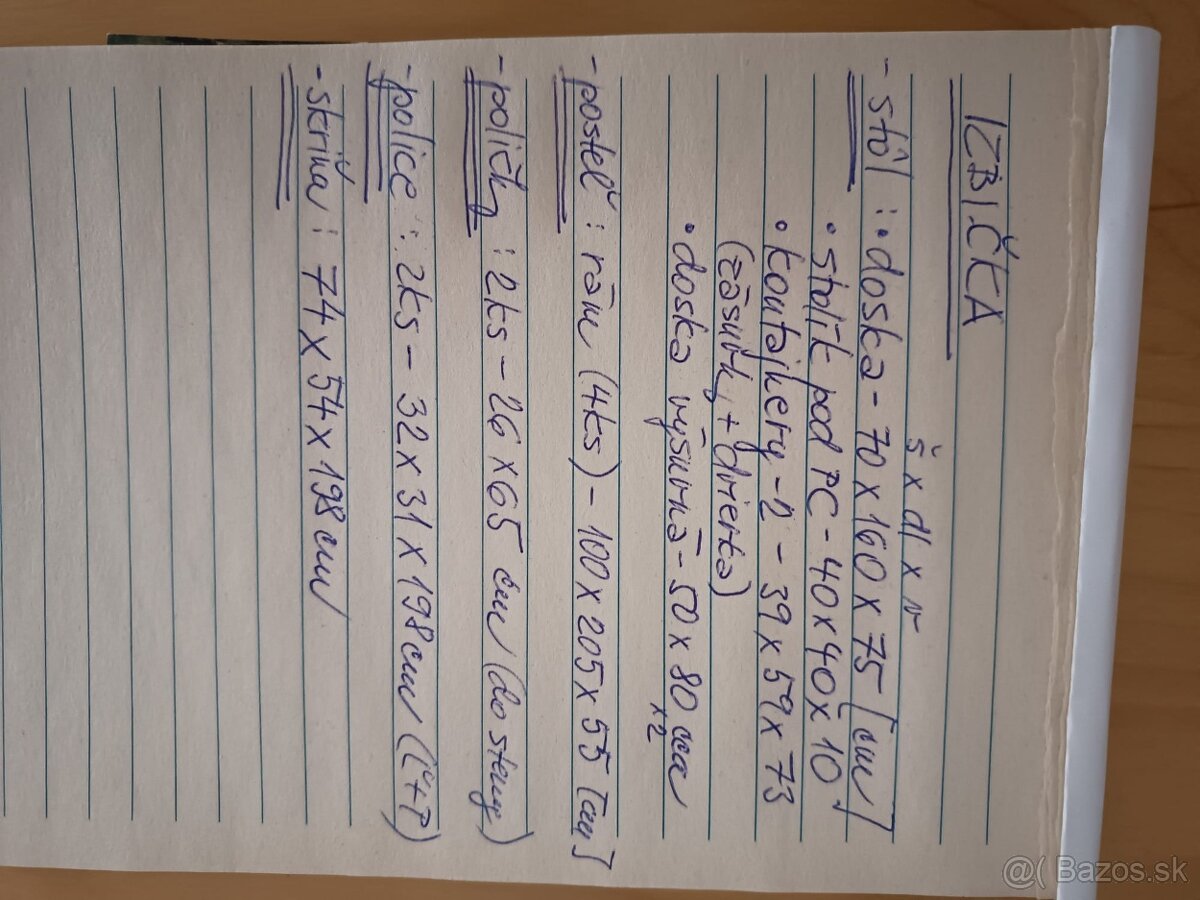 IZBIČKA
š x dl x v
- stôl : • doska - 70 x 160 x 75 [cm]
• stolík pod PC - 40 x 40 x 10
• kontajnery - 2 - 39 x 59 x 73
(zásuvky + dvierka)
• doska výsuvná - 50 x 80 cca
x 2
- posteľ : rám (4ks) - 100 x 205 x 55 [cm]
- poličky : 2ks - 26 x 65 cm (do steny)
- police : 2ks - 32 x 31 x 198 cm (Ľ+P)
- skriňa : 74 x 54 x 198 cm
@( Bazos.sk